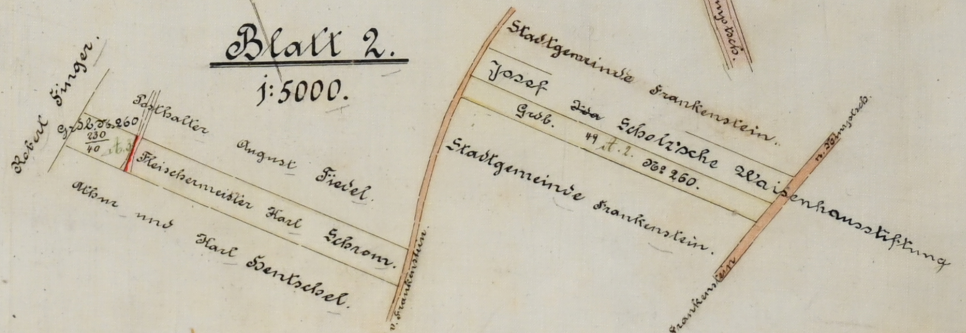 Blatt 2.
1:5000.
Robert Finger.
Grdb. № 260
230
40
Posthalter August Tiedel.
Fleischermeister Karl Schrom.
und Karl Hentschel.
v. Frankenstein
Stadtgemeinde Frankenstein.
Josef Scholz'sche Waisenhausstiftung
Grdb. 49 № 260.
Stadtgemeinde Frankenstein.
Frankenstein